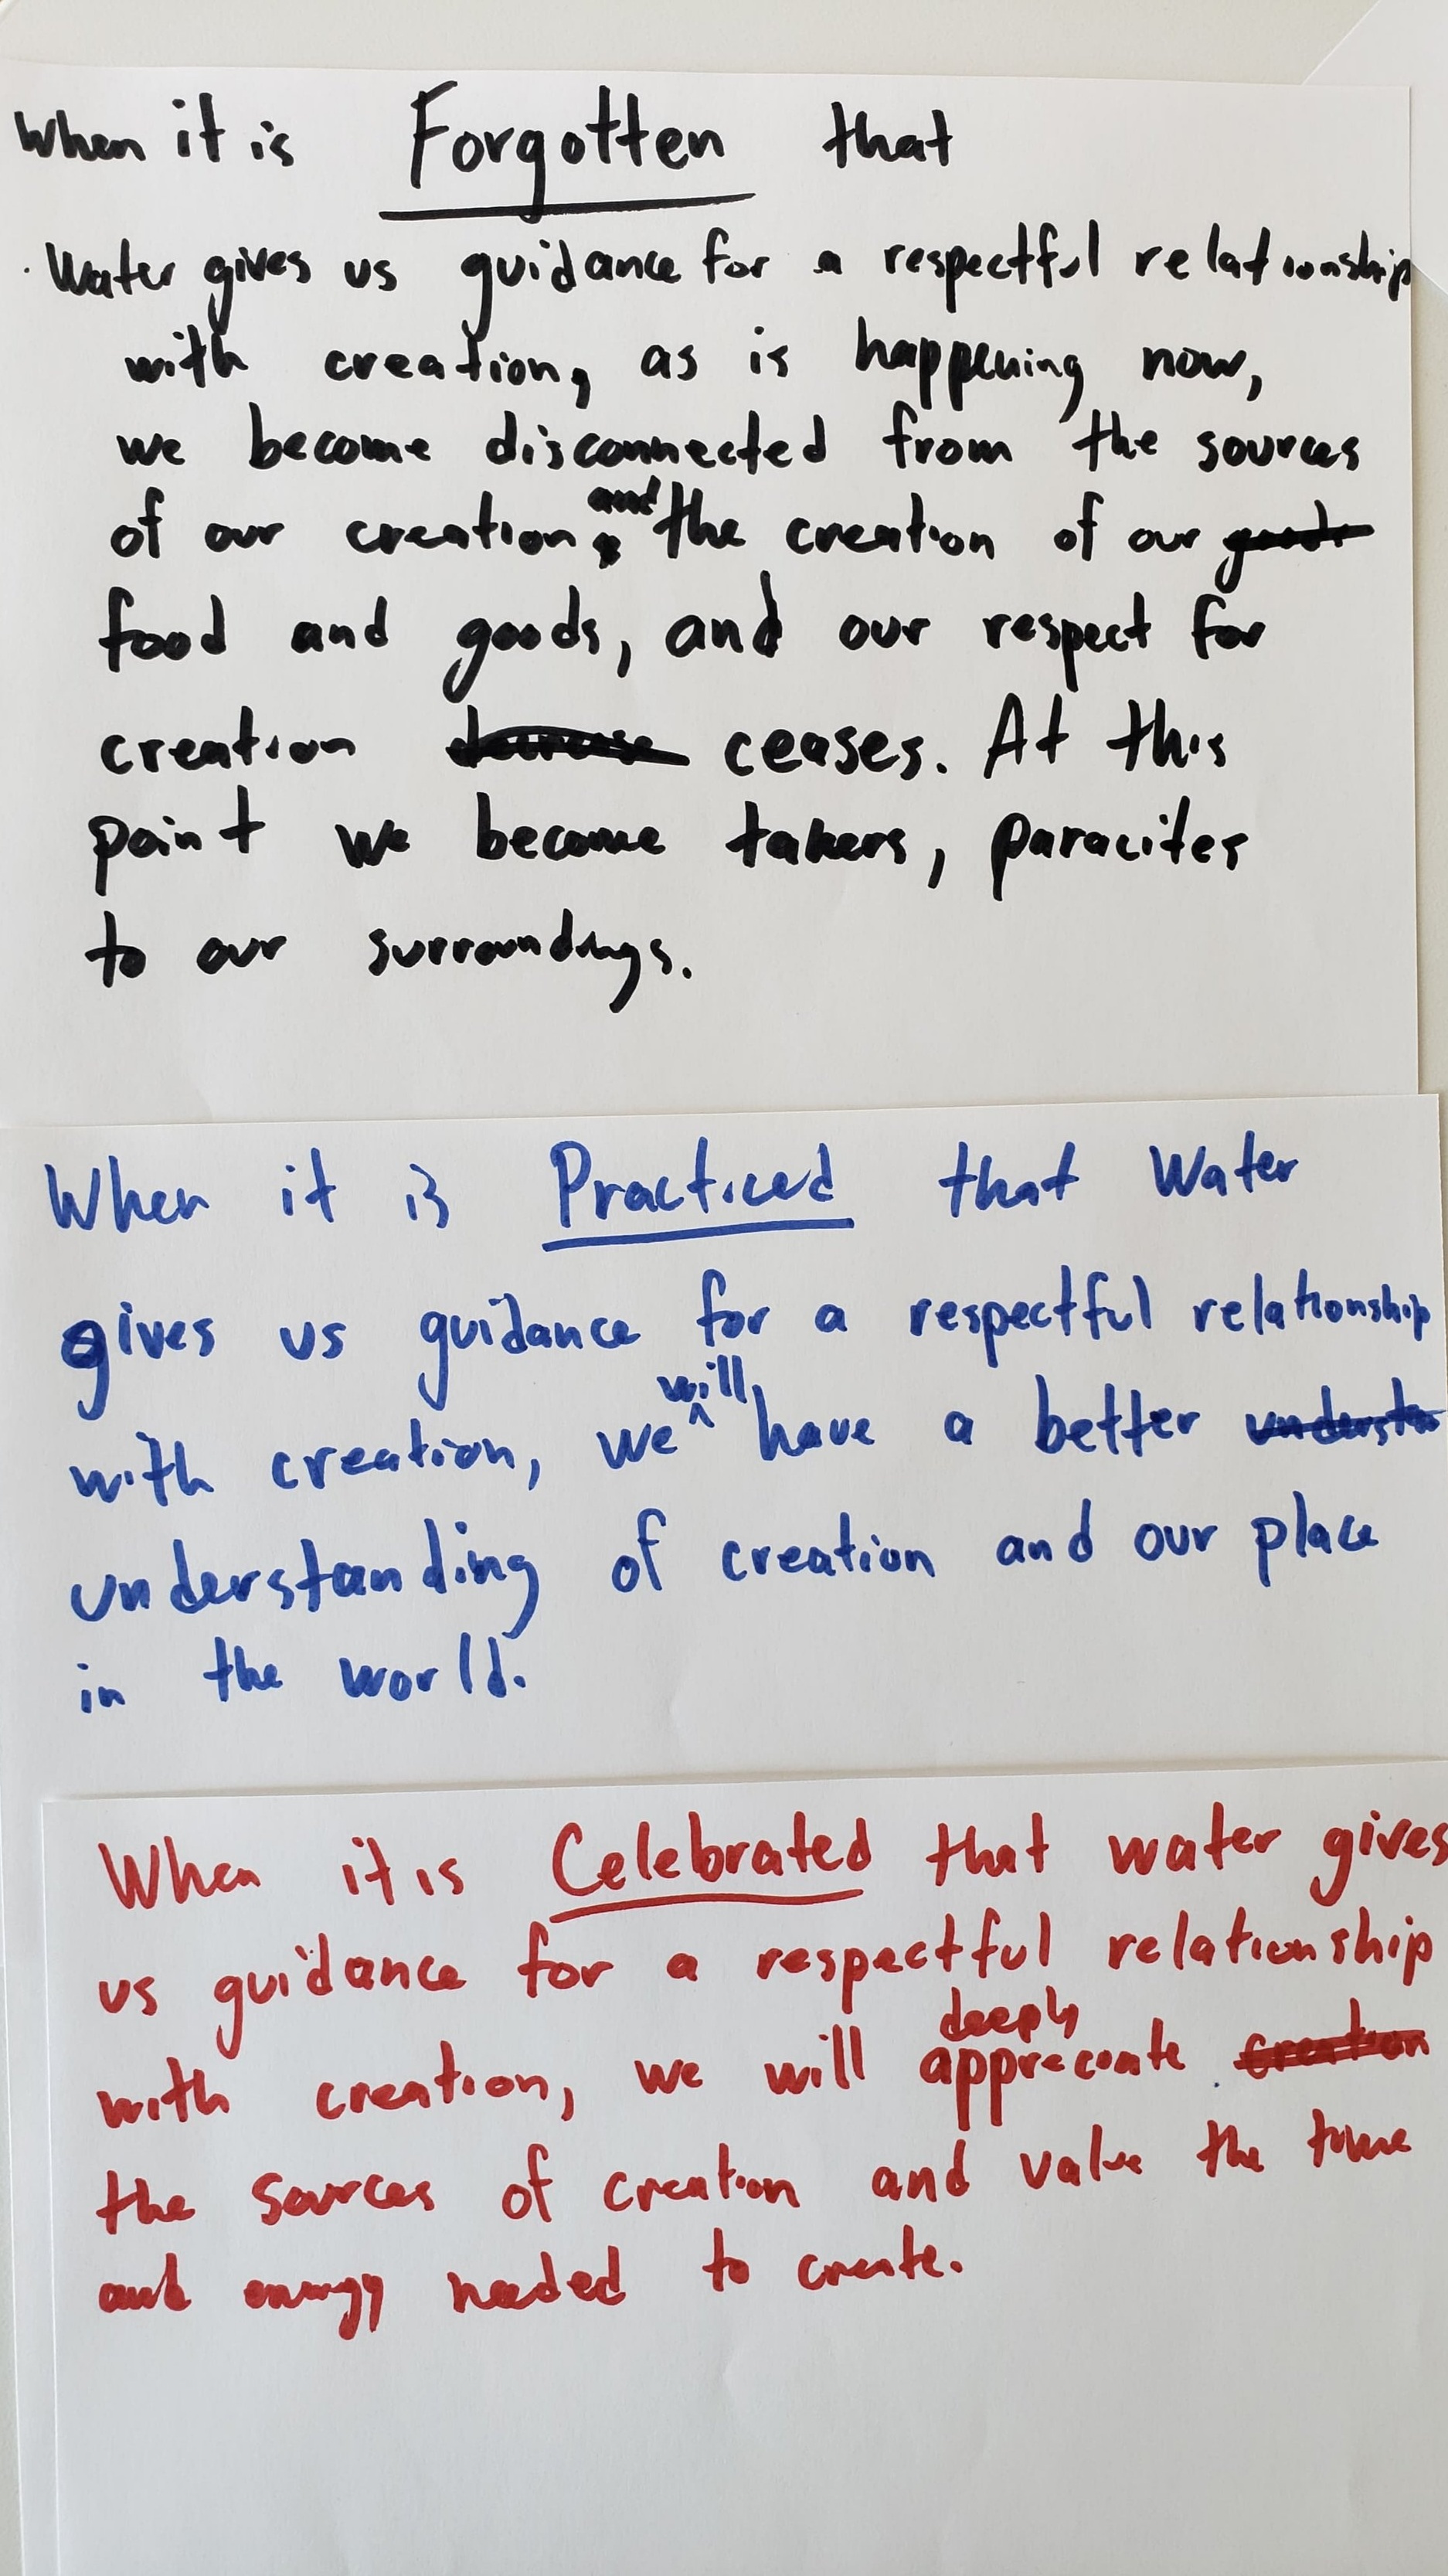 When it is Forgotten that
Water gives us guidance for a respectful relationship
with creation, as is happening now,
we become disconnected from the sources
of our creation and the creation of our goods
food and goods, and our respect for
creation decrease ceases. At this
point we become takers, paracites
to our surroundings.
When it is Practiced that Water
gives us guidance for a respectful relationship
with creation, we will have a better understa
understanding of creation and our place
in the world.
When it is Celebrated that water gives
us guidance for a respectful relationship
with creation, we will deeply appreciate creation
the sources of creation and value the time
and energy needed to create.